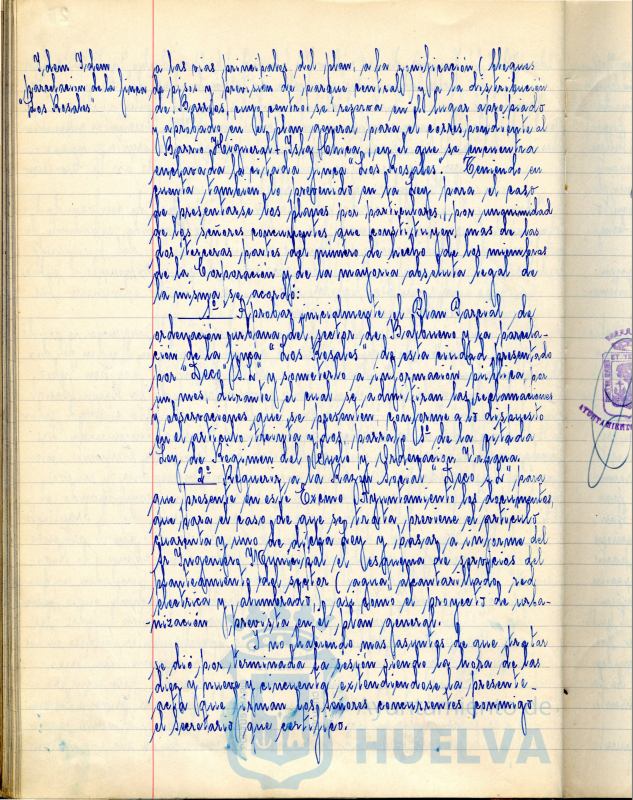 Idem. Idem
parcelación de la finca
"Los Rosales"
a las vias principales del plan, a la zonificación (bloques
de pisos y previsión de parque central) y a la distribución
de Barrios, cuyo centro se reserva en el lugar apropiado
y aprobado en el plan general para el correspondiente al
Barrio Higueral-Isla Chica, en el que se encuentra
enclavada la citada finca "Los Rosales". Teniendo en
cuenta también lo prevenido en la Ley para el caso
de presentarse los planes por particulares, por unanimidad
de los señores concurrentes que constituyen mas de las
dos terceras partes del número de hecho de los miembros
de la Corporación y de la mayoria absoluta legal de
la misma se acordó:
1º Aprobar inicialmente el Plan Parcial de
ordenación urbana del sector de Balbueno y la parcela-
ción de la finca "Los Rosales" de esta ciudad presentado
por "Deco S.L" y someterlo a información pública, por
un mes, durante el cual se admitiran las reclamaciones
y observaciones que se presenten, conforme a lo dispuesto
en el articulo treinta y dos, parrafo 1º de la citada
Ley de Regimen del Suelo y Ordenación Urbana.
2º Requerir a la Razón Social "Deco S.L" para
que presente en este Excmo Ayuntamiento los documentos,
que para el caso de que se trata, previene el articulo
cuarenta y uno de dicha Ley y pasar a informe del
Sr Ingeniero Municipal el esquema de servicios del
planteamiento del sector (agua, alcantarillado, red
electrica y alumbrado) asi como el proyecto de urba-
-nización prevista en el plan general.
Y no habiendo mas asuntos de que tratar
se dió por terminada la sesión siendo la hora de las
diez y nueve y cincuenta, extendiendose la presente
acta que firman los señores concurrentes conmigo
el Secretario que certifico.
AYUNTAMIENTO
Ayuntamiento de
HUELVA